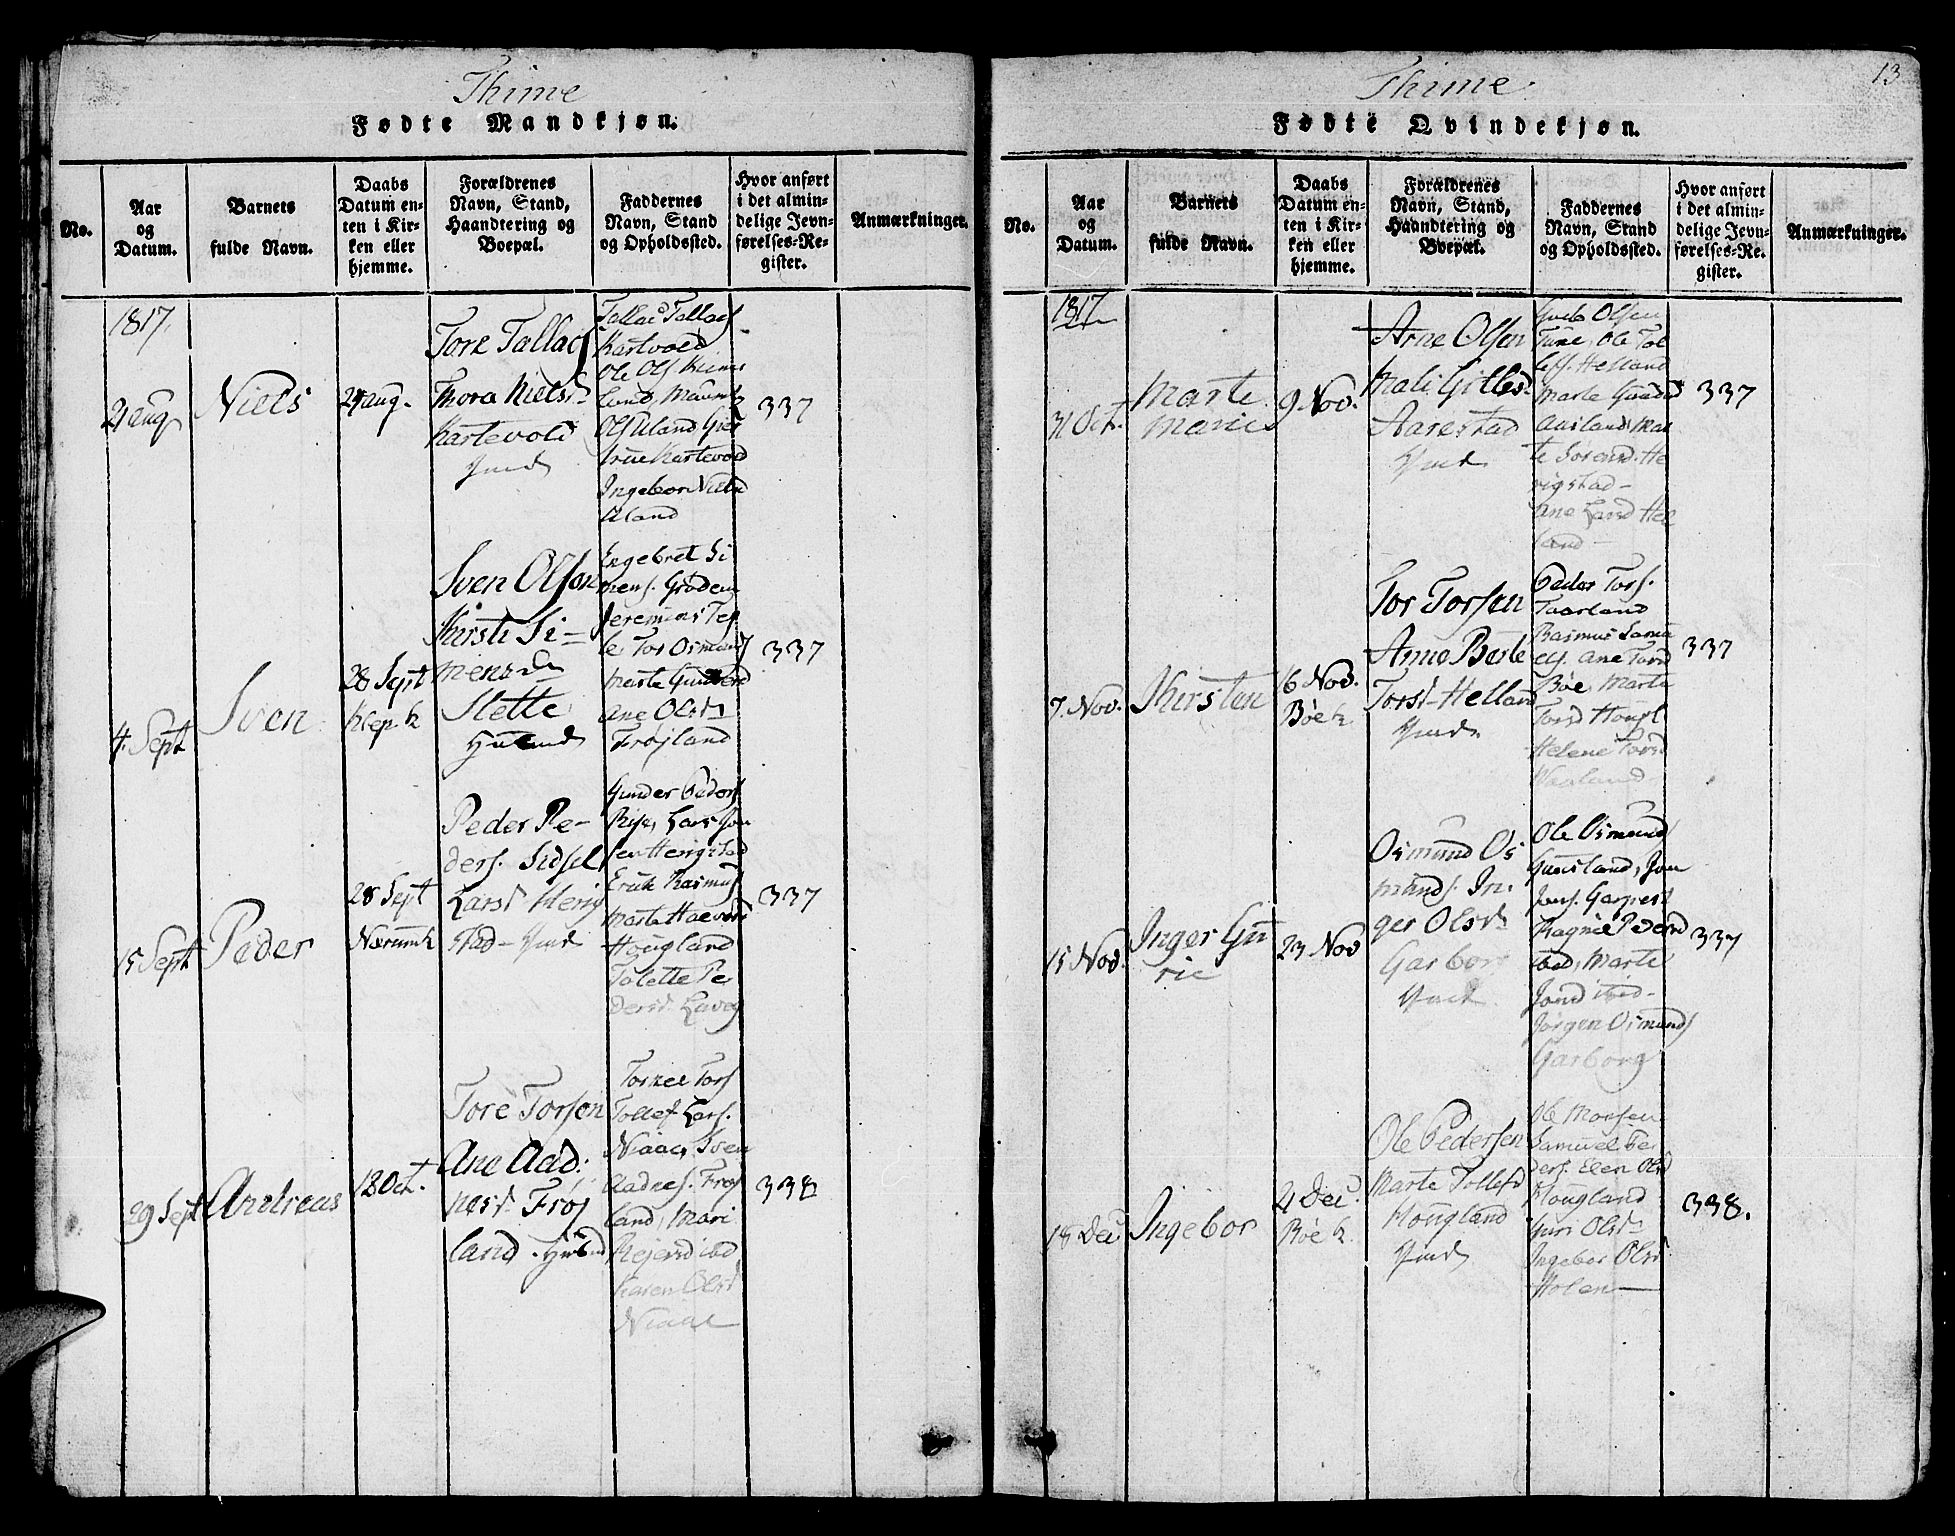 Thime
Fødte Mandkjøn.
No.
Aar
og
Datum.
Barnets
fulde Navn.
Daabs
Datum en-
ten i Kir-
ken eller
hjemme.
Forældrenes
Navn, Stand,
Haandtering og
Boepæl.
Faddernes
Navn, Stand
og Opholdssted.
Hvor anført
i det almin-
delige Jevn-
førelses-Re-
gister.
Anmærkninger.
1817.
21 aug
Niels
24 aug.
Tore Tallacs
Thora Nielsd
Kartevold
Tallac Tallacs
Kartvold
Ole Olss
Olss Uland
Kartevold
Ingebor Nielsd
Uland
337
4. Sept
Sven
28 Sept
Klep k
Sven Olsen
Kirsti Si-
mensd
Slette
Engebret Si
mens. Grødem
Jeremias
Tor Osmunds
Marta
Ane Olsd
Frøjland
337
15 Sept
Peder
28 Sept
Nærum k
Peder Pe-
ders. Sidsel
Larsd Herig
stad
Gunder Peders
Lars Jon
sen Herigstad
Erich Rasmuss
Marta
Hougland
Talette Pe
dersd.
337
29 Sept
Andreas
18 Oct.
Tore Torsen
Ane Aad:
nesd Frøj
land
Tors
Tollef Lars.
Niaa, Sven
Aadnes. Frøj
land, Mari
Rejersd ibd
Karen Olsd
Niaae
338
13
Thime
Fødte Qvindekjøn.
No.
Aar
og
Datum.
Barnets
fulde Navn.
Daabs
Datum en-
ten i Kir-
ken eller
hjemme.
Forældrenes
Navn, Stand,
Haandtering og
Boepæl.
Faddernes
Navn, Stand
og Opholdssted.
Hvor anført
i det almin-
delige Jevn-
førelses-Re-
gister.
Anmærkninger.
1817
31 Oct.
Marte
Marie
9 Nov.
Arne Olsen
Mali Gitlesd.
Aarestad
Olsen
Tune, Ole Tol
lefs. Helland
Marte
Mar
te Sørensd. He
rigstad-
Ane Larsd Hel
land-
337
7. Nov.
Khirsten
16 Nov.
Bøe k
Tor Torsen
Anne Berte
Torsd- Helland
Peder Tors.
Taarland
Rasmus Samu
els. Ane Torsd
Bøe, Marta
Torsd Hougl
Helene Torsd
337
15 Nov.
Inger Gu
rie
23 Nov
Osmund Os
munds. In.
ger Olsd
Garborg
Ole Osmund
Jon
Jons. Garborg
Ragnil Pedersd
ibid, Marte
Jonsd ibid-
Jørgen Osmunds
Garborg
337
18 Dec
Ingebor
21 Dec.
Bøe k.
Ole Pedersen
Marte Tollefsd
Hougland
Ole
Samuel Pe
ders. Elen Olsd
Hougland
Guri Olsd
Ingebor Olsd
Holen
338.